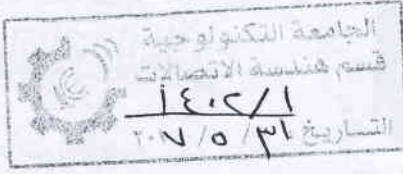 الجامعة التكنولوجية
قسم هندسة الاتصالات
١٤٠٢/١
التاريخ ٣١ / ٥ / ٢٠١٧